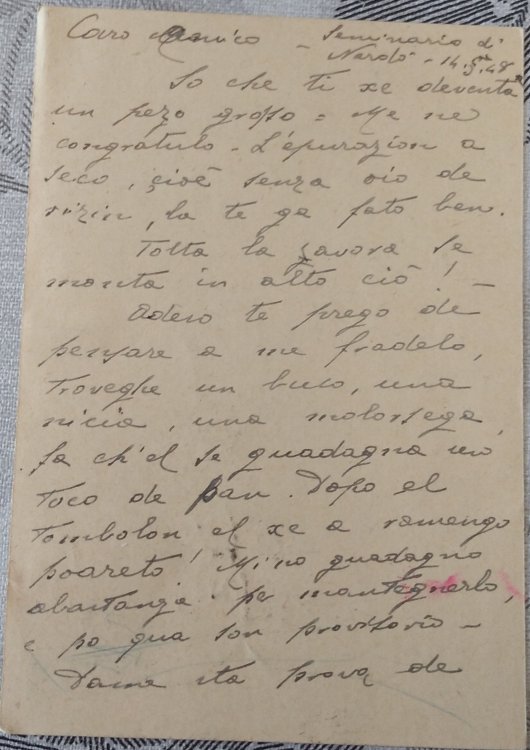 Caro Amico Seminario di
- Nardò - 14.5.48
So che ti xe deventà
un pezo grosso = Me ne
congratulo - L'epurazion a
seco, cioè senza oio de
rizin, la te ga fato ben.
Tolta la zavora se
monta in alto ciò! -
Adeso te prego de
pensare a me fradelo,
troveghe un buso, una
nicia, una
fa ch'el se guadagna un
toco de pan. Dopo el
tombolon el xe a ramengo
poareto! Mi no guadagno
abastanza per mantegnerlo,
e po qua son provisorio -
Dame sta prova de